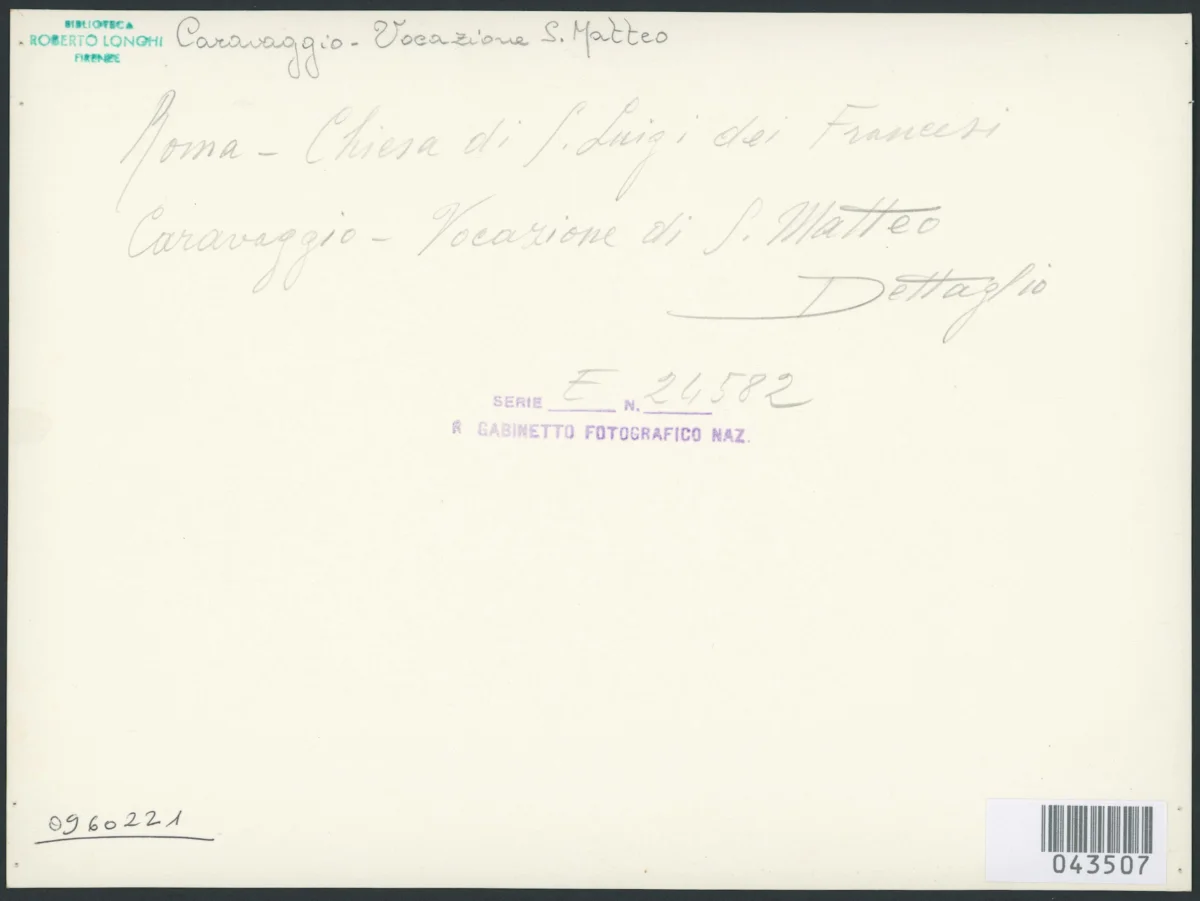 BIBLIOTECA
ROBERTO LONGHI
FIRENZE
Caravaggio - Vocazione S. Matteo
Roma - Chiesa di S. Luigi dei Francesi
Caravaggio - Vocazione di S. Matteo
Dettaglio
SERIE E N. 24582
R GABINETTO FOTOGRAFICO NAZ.
0960221
043507